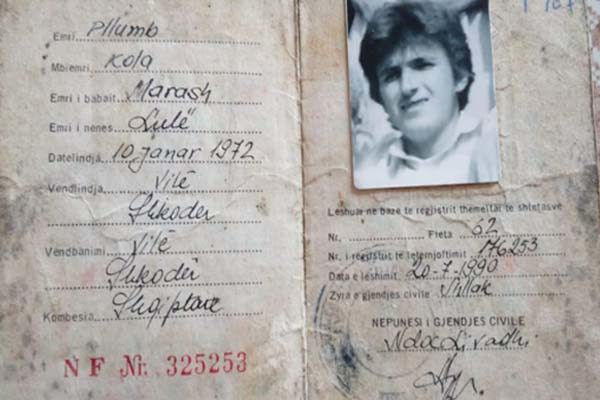 Emri Pllumb
Mbiemri Kola
Emri i babait Marash
Emri i nenes Lulë
Datelindja 10 Janar 1972
Vendlindja Vilë
Shkodër
Vendbanimi Vilë
Shkodër
Kombesia Shqiptare
NF Nr. 325253
Leshuar ne baze te regjistrit themeltar te shtetasve
Nr. Fleta 62
Nr. i regjistrit te leternjoftimit 176253
Data e leshimit 20-7-1990
Zyra e gjendjes civile
NEPUNESI I GJENDJES CIVILE